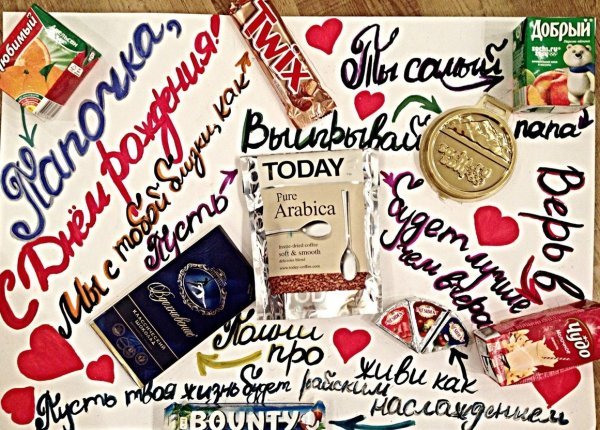 Любимый
Папочка,
С Днём рождения!
Мы с тобой близки, как
TWIX
Ты самый
Добрый
sochi.ru
папа
Выигрывай
Верь в
Чудо
Пусть
TODAY
Pure
Arabica
freeze-dried coffee
soft & smooth
delicious blend
www.today-coffee.com
TODAY
будет лучше
чем вчера
Помни
про
Вдохновение
КЛАССИЧЕСКИЙ
ШОКОЛАД
живи как
наслаждением
Пусть твоя жизнь будет райским
BOUNTY